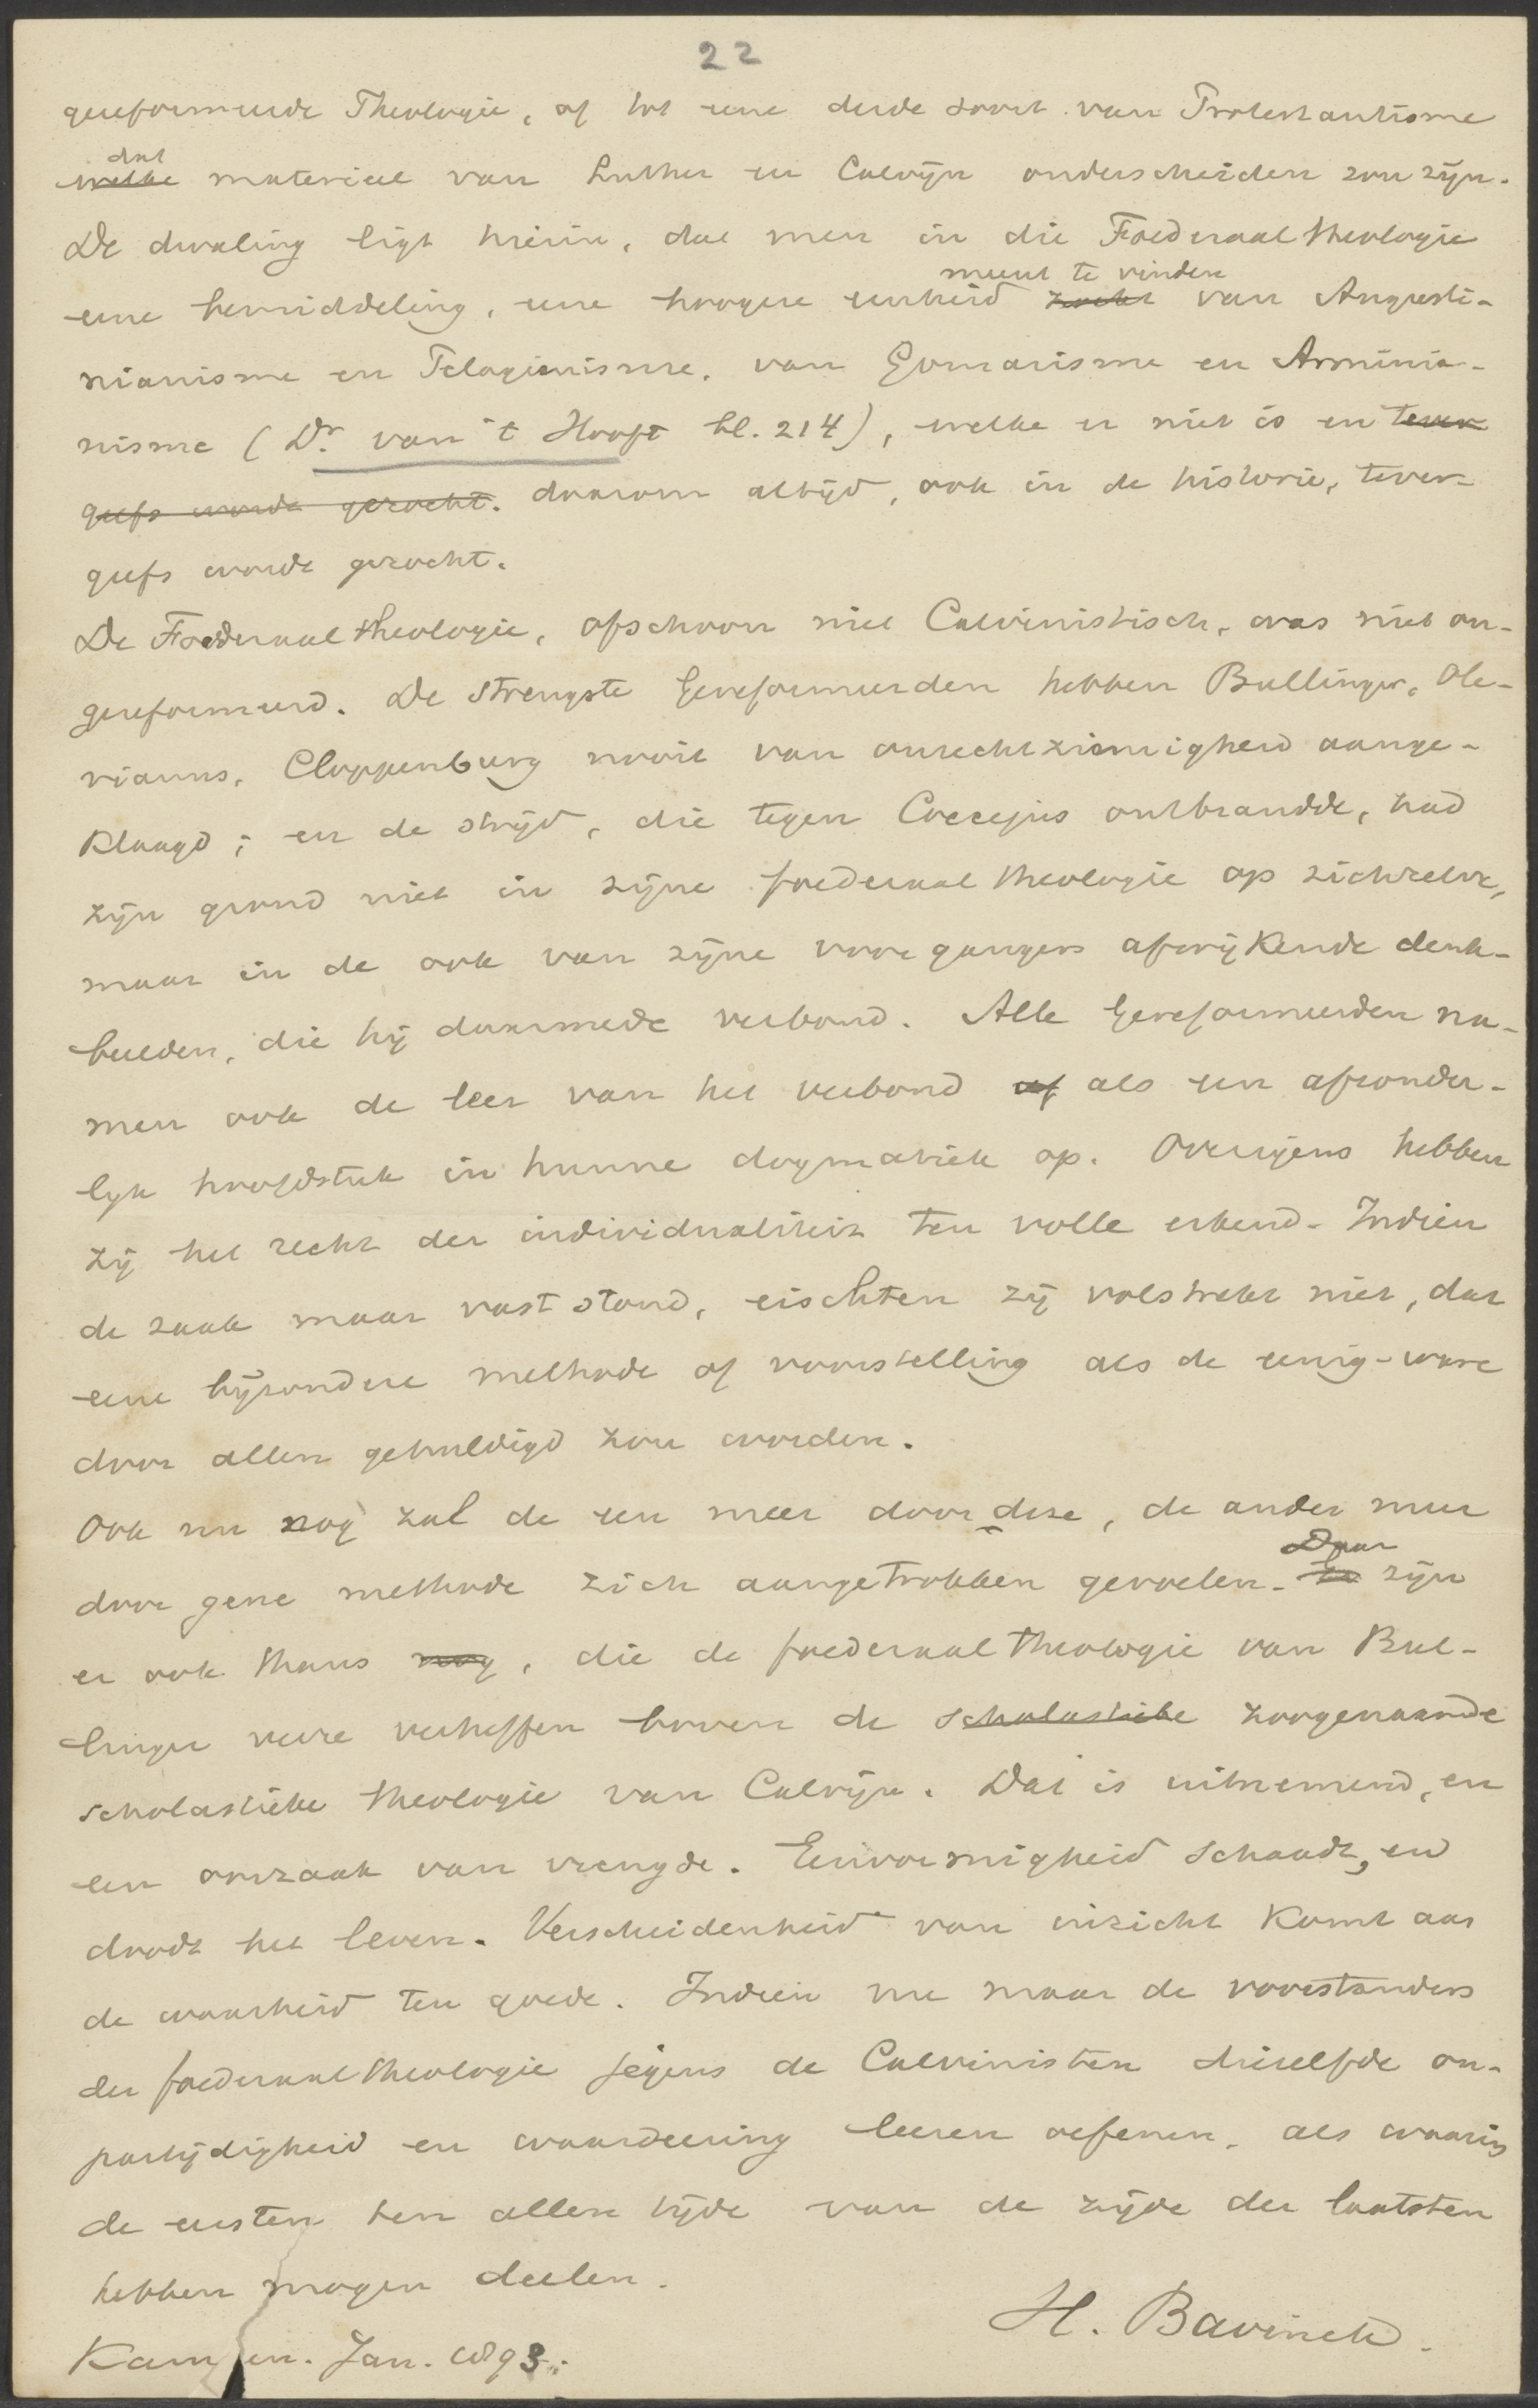 22
gereformeerde Theologie, of tot eene derde soort van Protestantisme
dat
welke materieel van Luther en Calvijn onderscheiden zou zijn.
De dwaling ligt hierin, dat men in die Foederaaltheologie
meent te vinden
eene bemiddeling, eene hoogere eenheid zoekt van Augusti-
nianisme en Pelagianisme, van Gomarisme en Arminia-
nisme (Dr. van 't Hooft bl. 214), welke er niet is en tever
geefs wordt gezocht. daarom altijd, ook in de historie, tever-
geefs wordt gezocht.
De Foederaaltheologie, ofschoon niet Calvinistisch, was niet on-
gereformeerd. De strengste Gereformeerden hebben Bullinger, Ole-
vianus, Cloppenburg nooit van onrechtzinnigheid aange-
klaagd; en de strijd, die tegen Coccejus ontbrandde, had
zijn grond niet in zijne foederaaltheologie op zichzelve,
maar in de ook van zijne voorgangers afwijkende denk-
beelden, die hij daarmede verbond. Alle Gereformeerden na-
men ook de leer van het verbond of als een afzonder-
lijk hoofdstuk in hunne dogmatiek op. Overigens hebben
zij het recht der individualiteit ten volle erkend. Indien
de zaak maar vast stond, eischten zij volstrekt niet, dat
eene bijzondere methode of voorstelling als de eenig-ware
door allen gehuldigd zou worden.
Ook nu nog zal de een meer door deze, de ander meer
Daar
door gene methode zich aangetrokken gevoelen. En zijn
er ook thans nog, die de foederaaltheologie van Bul-
linger verre verheffen boven de scholastieke zoogenaamde
scholastieke theologie van Calvijn. Dat is uitnemend, en
een oorzaak van vreugde. Eenvormigheid schaadt, en
doodt het leven. Verscheidenheid van inzicht komt aan
de waarheid ten goede. Indien nu maar de voorstanders
der foederaaltheologie jegens de Calvinisten diezelfde on-
partijdigheid en waardeering leeren oefenen, als waarin
de eersten ten allen tijde van de zijde der laatsten
hebben mogen deelen.
H. Bavinck.
Kampen. Jan. 1893.